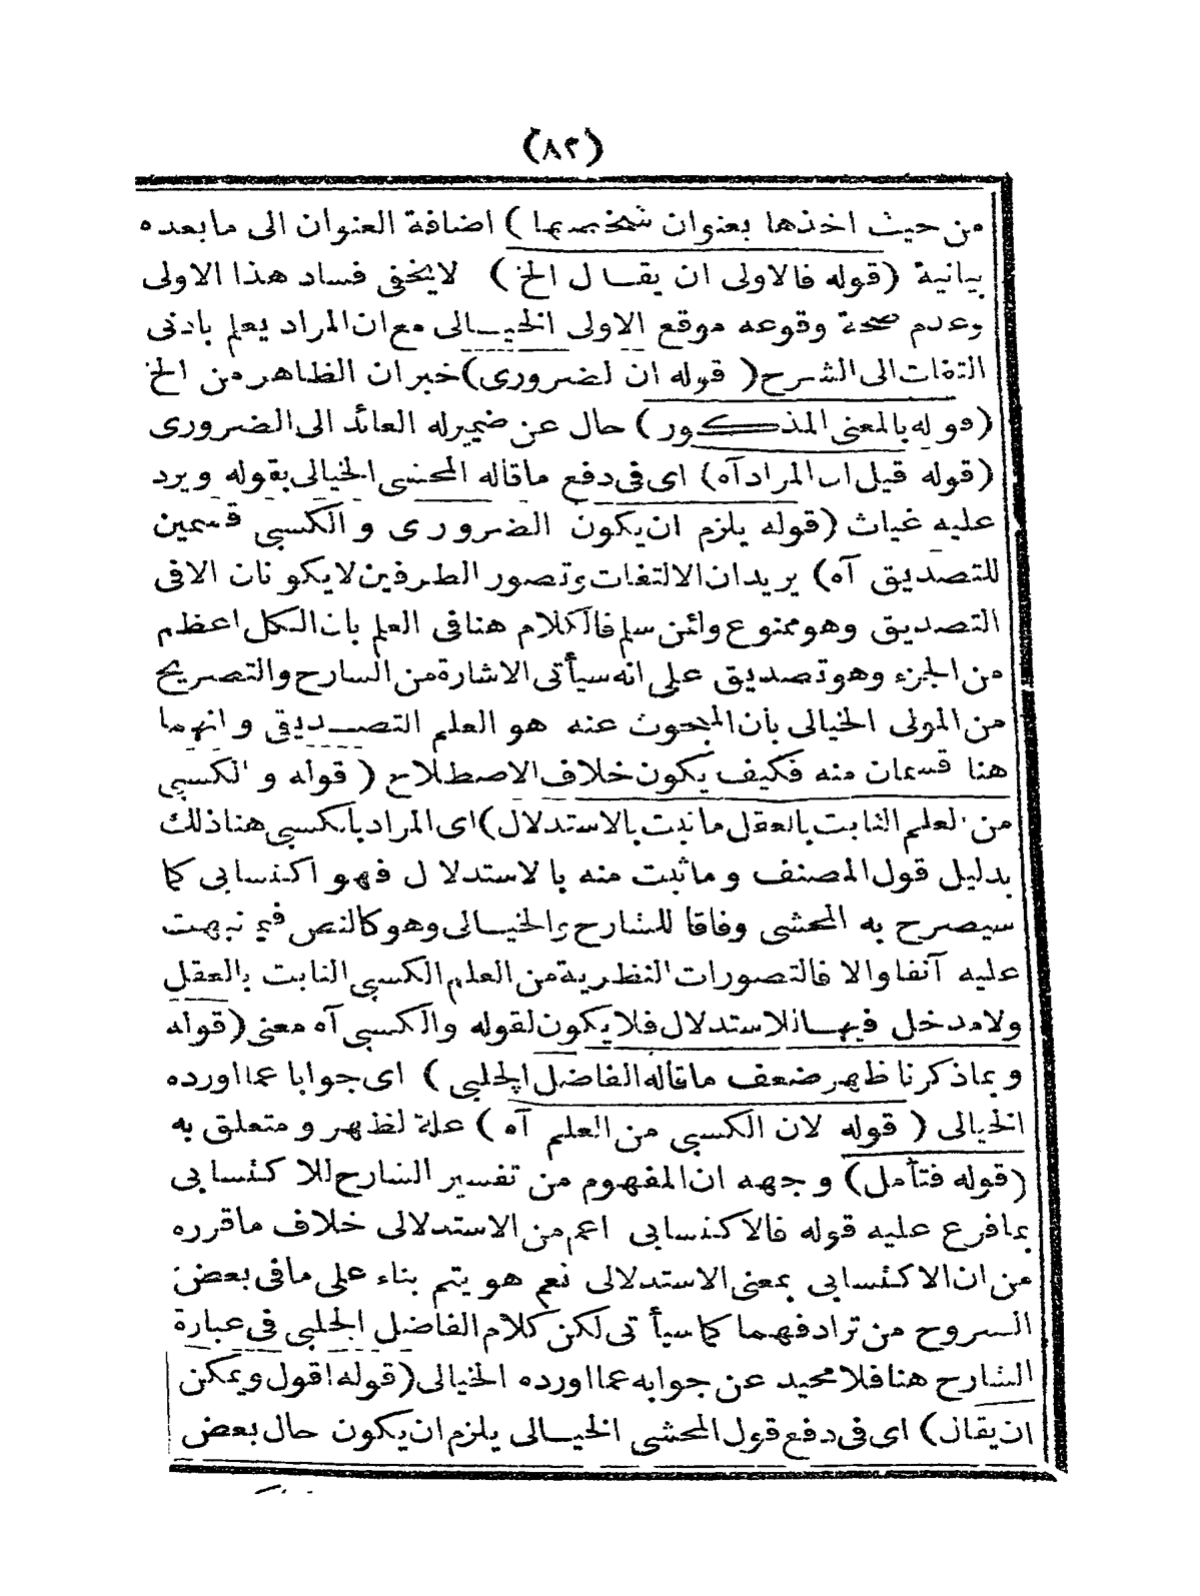 (٨٢)
من حيث اخذها بعنوان شخصيها) اضافة العنوان الى مابعده
بيانية (قوله فالاولى ان يقال الخ) لايخفى فساد هذا الاولى
وعدم صحة وقوعه موقع الاولى الخيالى مع ان المراد يعلم بادنى
التفات الى الشرح (قوله ان لضرورى) خبر ان الظاهر من الخ
(قوله بالمعنى المذكور) حال عن ضمير له العائد الى الضرورى
(قوله قيل ان المراد آه) اى فى دفع ماقاله المحشى الخيالى بقوله ويرد
عليه غياث (قوله يلزم ان يكون الضرورى والكسبى قسمين
للتصديق آه) يريد ان الالتفات وتصور الطرفين لايكونان الا فى
التصديق وهو ممنوع وائن سلم فالكلام هنا فى العلم بان الكل اعظم
من الجزء وهو تصديق على انه سيأتى الاشارة من الشارح والتصريح
من المولى الخيالى بان المبحوث عنه هو العلم التصديقى وانهما
هنا قسمان منه فكيف يكون خلاف الاصطلاح (قوله والكسبى
من لعلم الثابت بالعقل ما ثبت بالاستدلال) اى المراد بالكسبى هنا ذلك
بدليل قول المصنف وما ثبت منه بالاستدلال فهو اكتسابى كما
سيصرح به المحشى وفاقا للشارح والخيالى وهو كالنص فيما نبهت
عليه آنفا والا فالتصورات النظرية من العلم الكسبى الثابت بالعقل
ولا مدخل فيها للاستدلال فلا يكون لقوله والكسبى آه معنى (قوله
وبما ذكرنا ظهر ضعف ماقاله الفاضل الچلبى) اى جوابا عما اورده
الخيالى (قوله لان الكسبى من العلم آه) علة لظهر ومتعلق به
(قوله فتأمل) وجهه ان المفهوم من تفسير الشارح للاكتسابى
بما فرع عليه قوله فالاكتسابى اعم من الاستدلالى خلاف ماقرره
من ان الاكتسابى بمعنى الاستدلالى نعم هو يتم بناء على مافى بعض
الشروح من ترادفهما كما سيأتى لكن كلام الفاضل الچلبى فى عبارة
الشارح هنا فلا محيد عن جوابه عما اورده الخيالى (قوله اقول ويمكن
ان يقال) اى فى دفع قول المحشى الخيالى يلزم ان يكون حال بعض